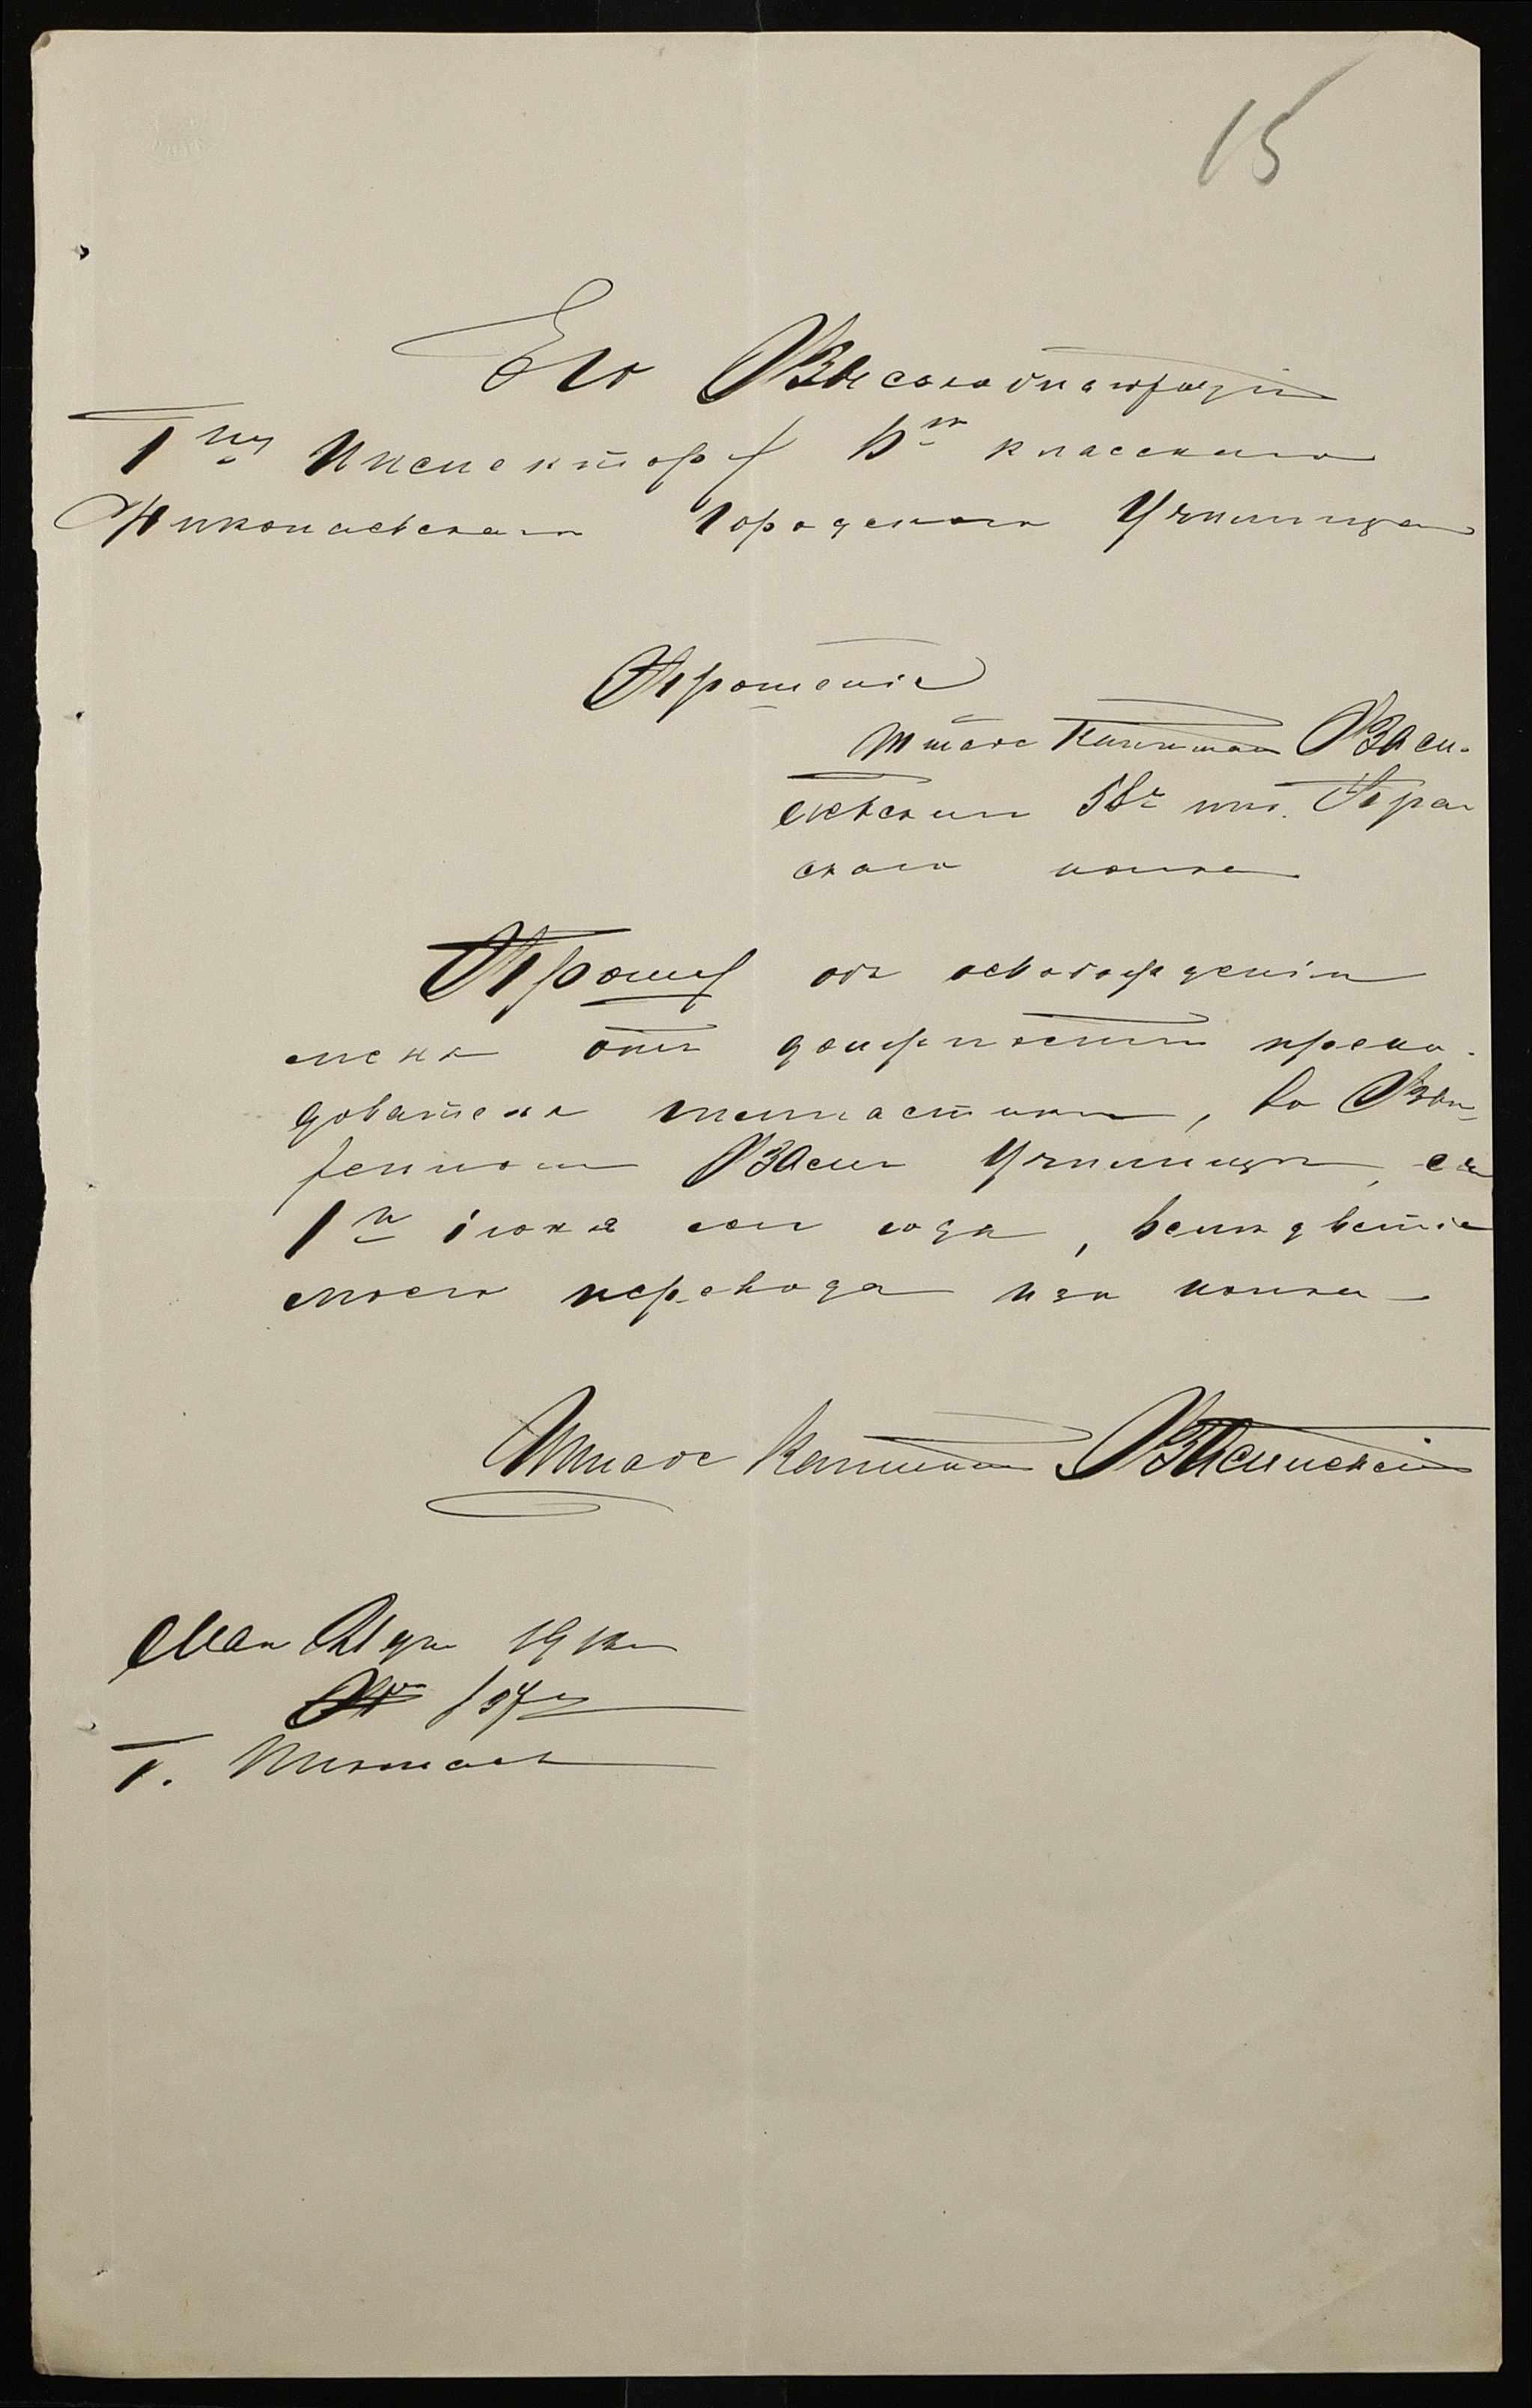 15
Его Высокоблагородiю
Гну Инспектору классного
Николаевскаго Городского Училища
Прошенiе
Штабс Капитана
58го пѣх. Праг
скаго полка
Прошу объ освобожденiи
меня отъ должности препо-
давателя гимнастики, во ввѣ-
ренномъ Вамъ Училищѣ, съ
1го iюня сего года, вслѣдствiе
моего перевода изъ полка
Штабс Капитан
Мая дня 191
№
Г. Николаевъ